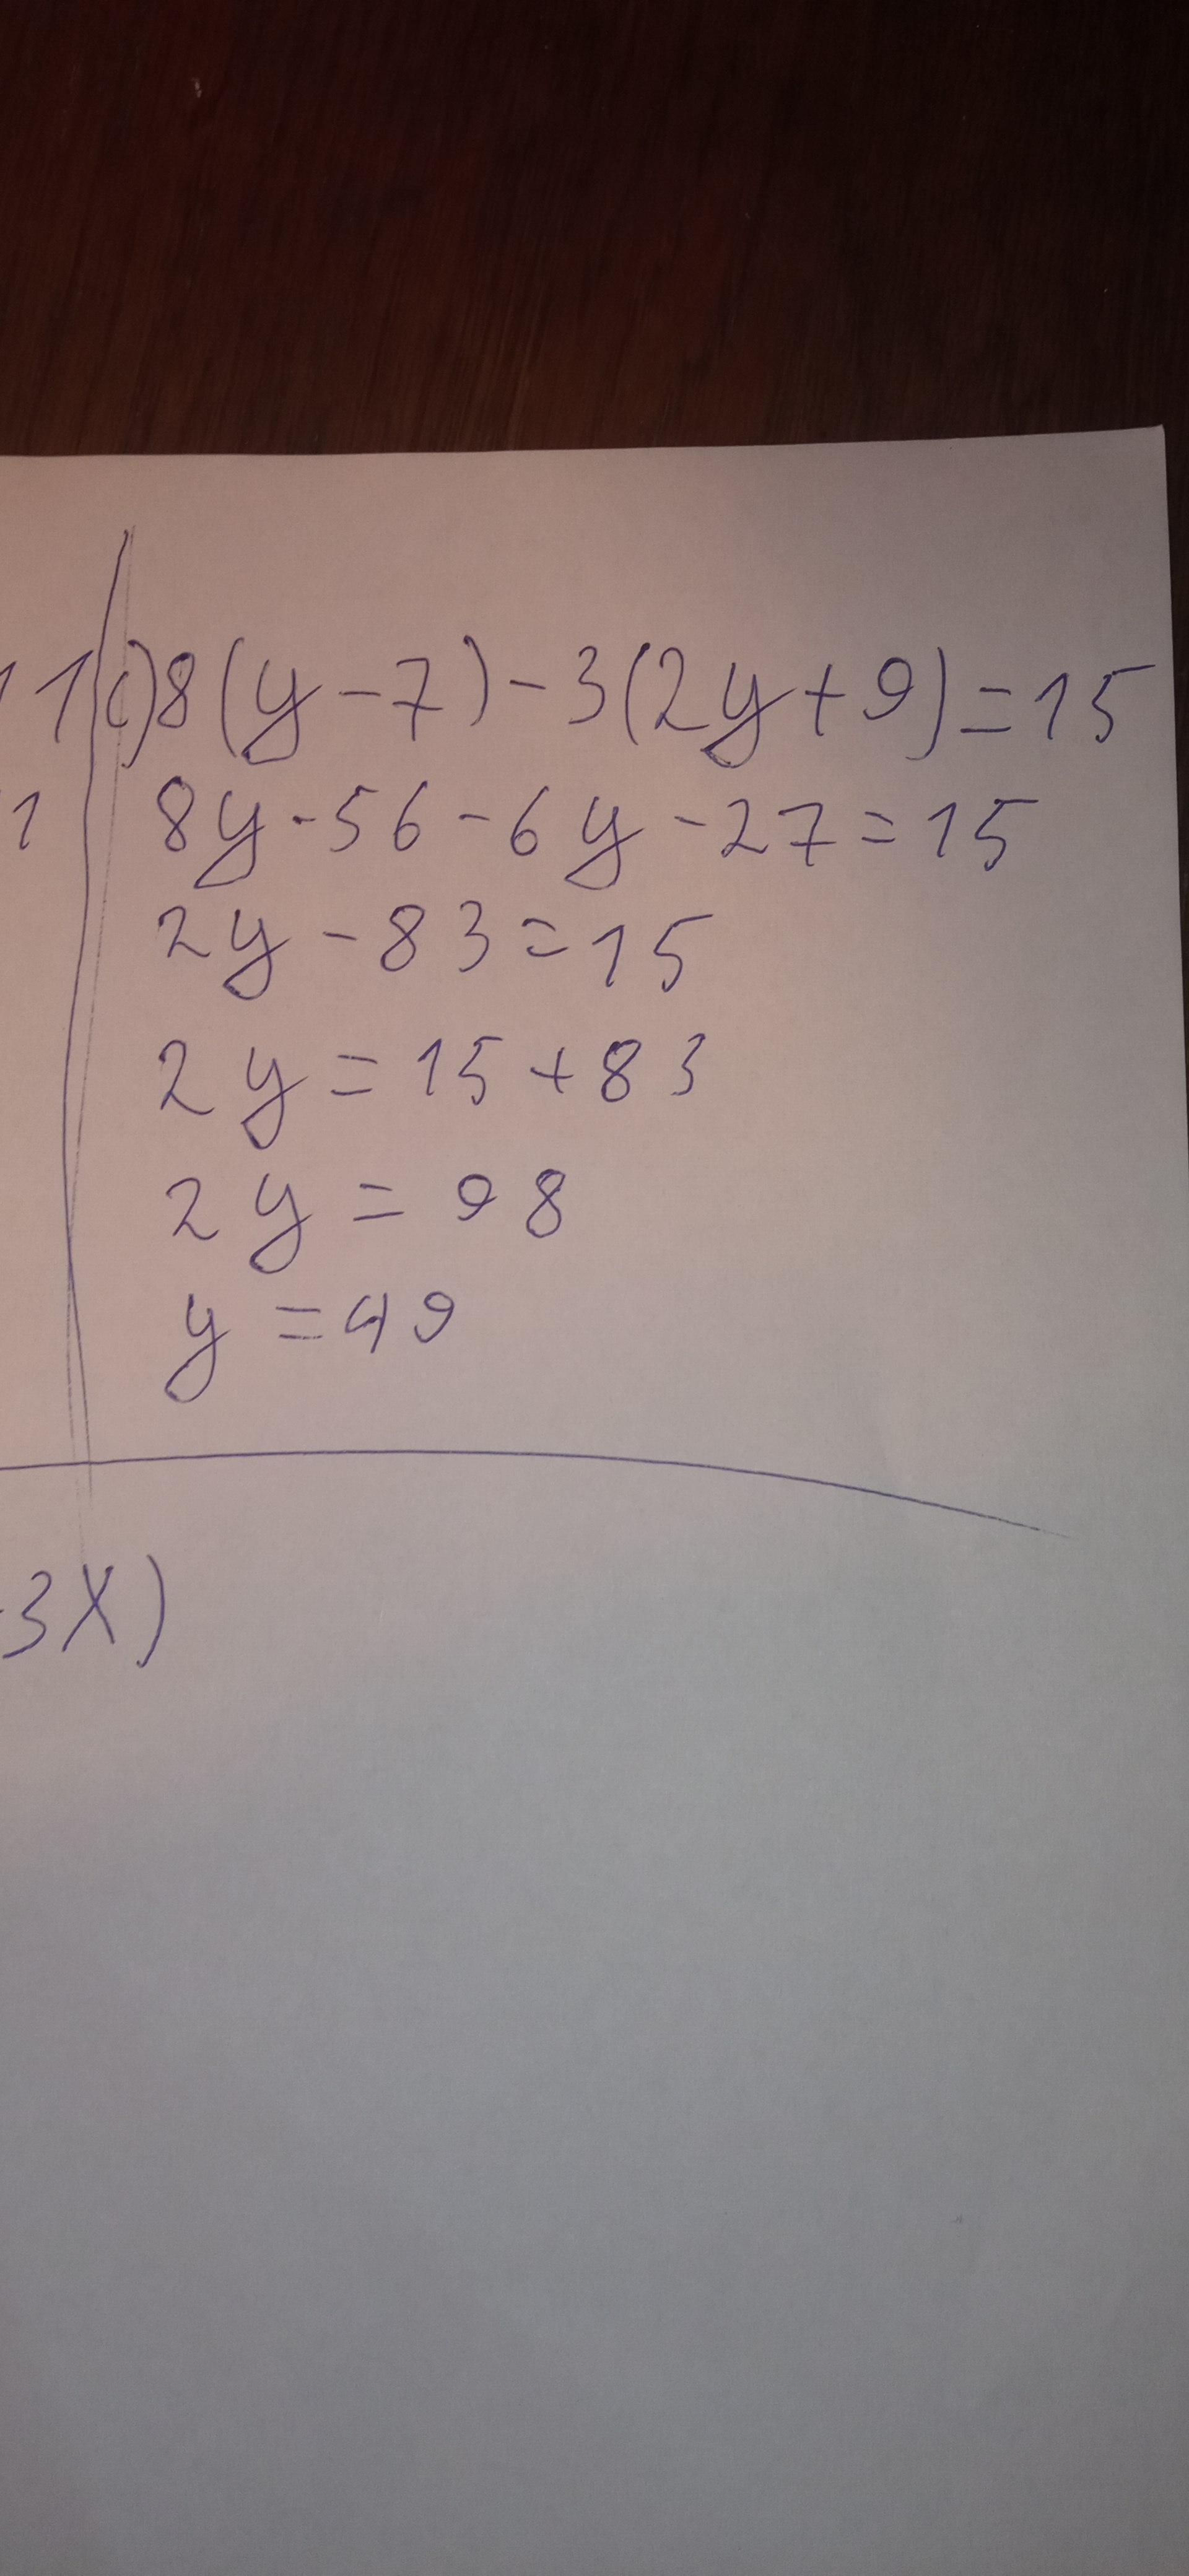 11 c) 8(y-7)-3(2y+9)=15
1 8y-56-6y-27=15
2y-83=15
2y=15+83
2y=98
y=49
-3x)